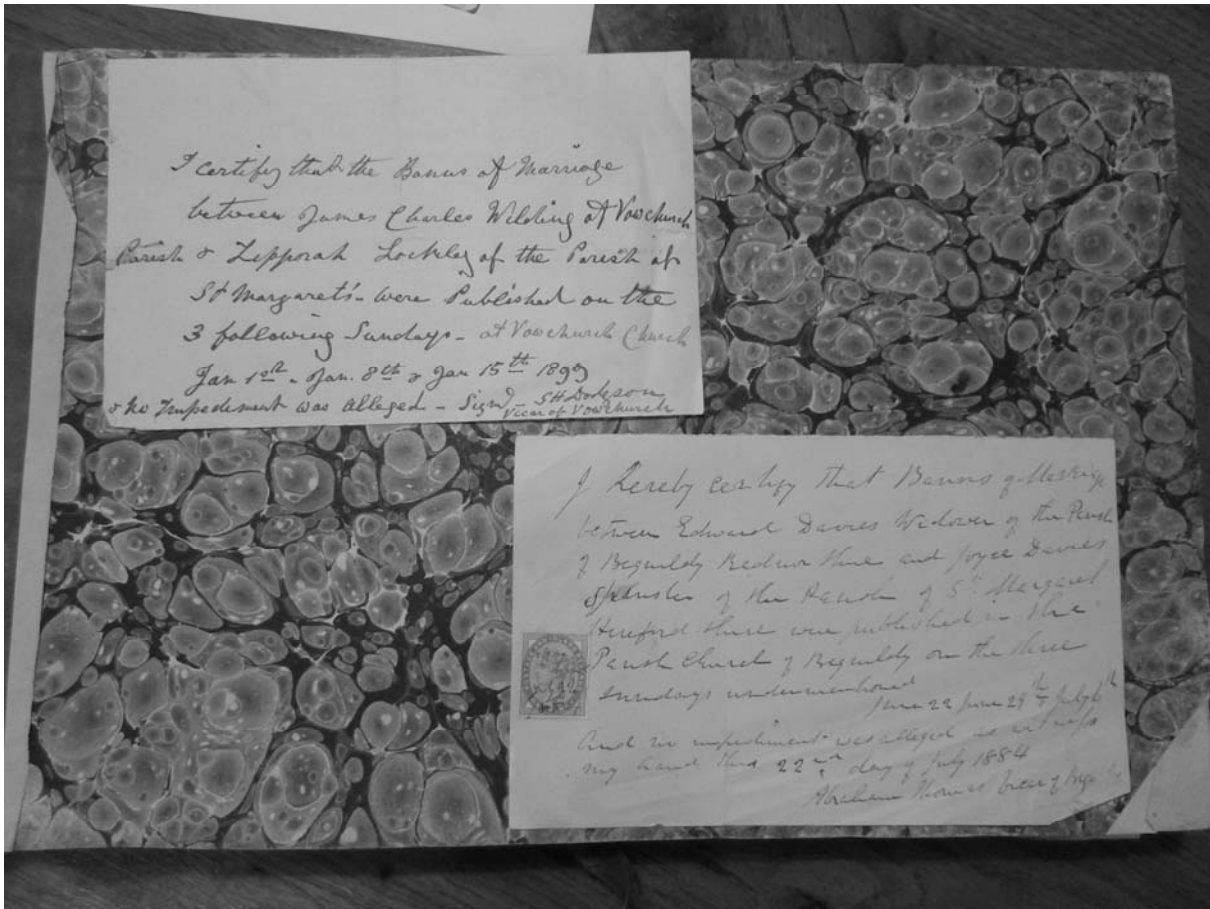 I certify that the Banns of Marriage
between James Charles Wilding of Vowchurch
Parish & Zipporah Lockley of the Parish of
St Margaret's - were Published on the
3 following Sundays - at Vowchurch Church
Jan 1st - Jan. 8th & Jan 15th 1899
& No Impediment was alleged - Signd - SH Dodgson
Vicar of Vowchurch
I hereby certify that Banns of Marriage
between Edward Davies Widower of the Parish
of Beguildy Radnor Shire and Joyce Davies
Spinster of the Parish of St Margaret
Hereford Shire were published in the
Parish Church of Beguildy on the three
Sundays undermentioned
June 22 June 29th & July 6th
And no impediment was alleged as witness
my hand this 22nd day of July 1884
Abraham Thomas Vicar of